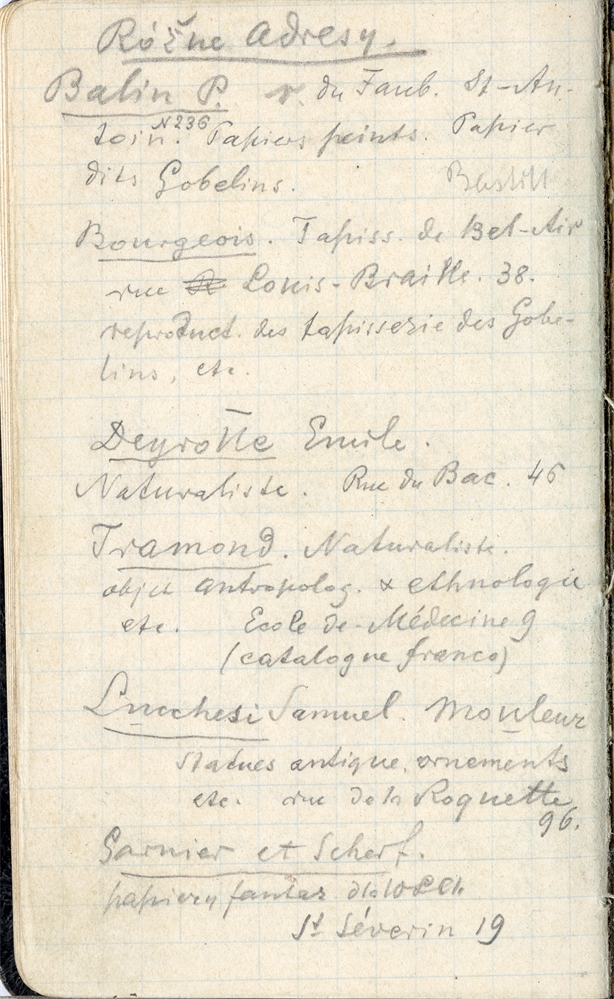 Różne adresy.
Balin P. r. du Faub. St-An-
toin. N 236 Papiers peints. Papier
dits Gobelins. Bastill
Bourgeois. Tapiss. de Bel-Air
rue Louis-Braille. 38.
reproduct. des tapisserie des Gobe-
lins, etc.
Deyrolle Emile.
Naturaliste. Rue du Bac. 46
Tramond. Naturaliste.
objet antropolog. & ethnologie
etc. Ecole de-Médecine 9
(catalogue franco)
Lucchesi Samuel. Mouleur
statues antique, ornements
etc. rue de la Roquette
96.
Garnier et Scherf.
papiery fantaz
St Séverin 19